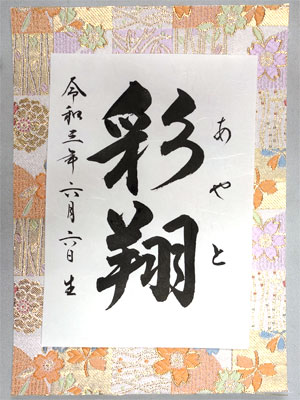 あやと
彩翔
令和三年六月六日生